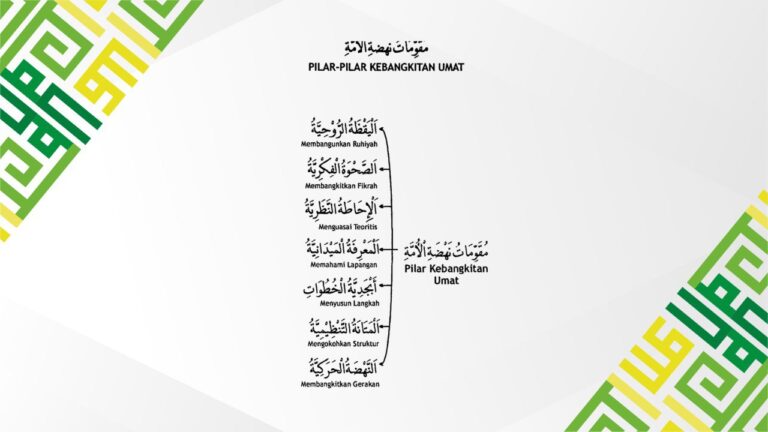 مقوّمات نهضة الأمّة
PILAR-PILAR KEBANGKITAN UMAT
اَلْيَقْظَةُ الرُّوْحِيَّةُ
Membangunkan Ruhiyah
اَلصَّحْوَةُ الْفِكْرِيَّةُ
Membangkitkan Fikrah
اَلْإِحَاطَةُ النَّظَرِيَّةُ
Menguasai Teoritis
اَلْمَعْرِفَةُ الْمَيْدَانِيَّةُ
Memahami Lapangan
أَبْجَدِيَّةُ الْخُطُوَاتِ
Menyusun Langkah
اَلْمَتَانَةُ التَّنْظِيْمِيَّةُ
Mengokohkan Struktur
اَلنَّهْضَةُ الْحَرَكِيَّةُ
Membangkitkan Gerakan
مُقَوِّمَاتُ نَهْضَةِ الْأُمَّةِ
Pilar Kebangkitan
Umat